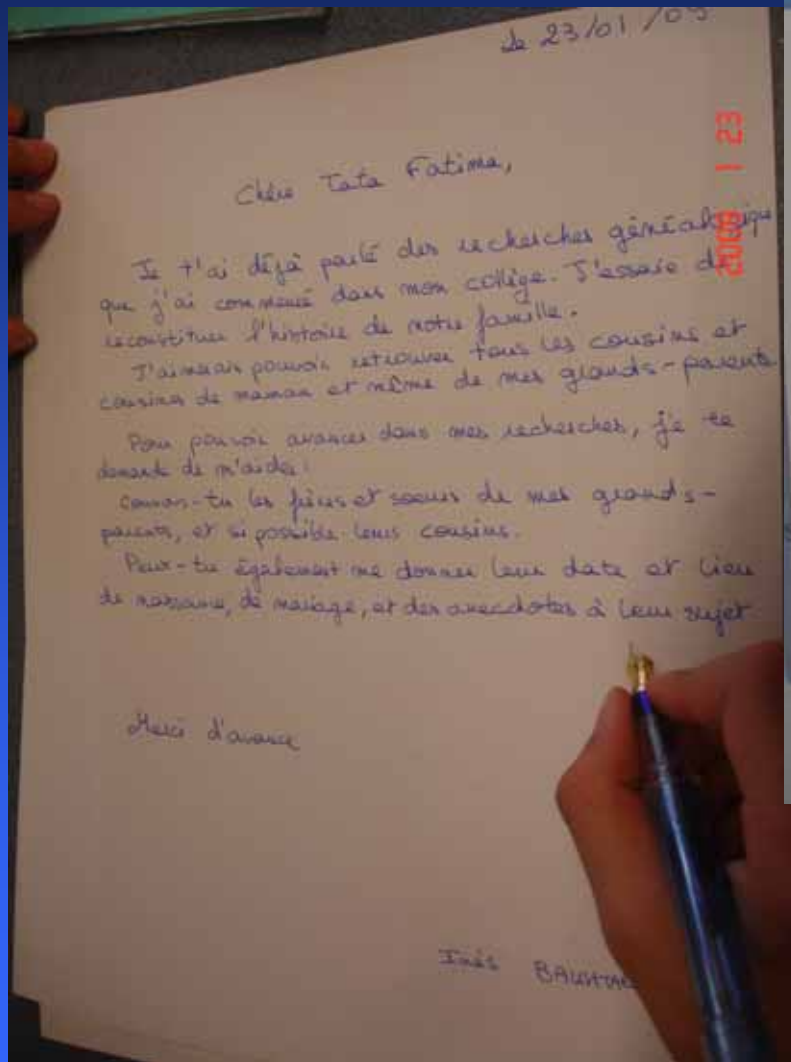 le 23/01/09
Chère Tata Fatima,
Je t'ai déjà parlé des recherches généalogique
que j'ai commencé dans mon collège. J'essaie de
reconstituer l'histoire de notre famille.
J'aimerais pouvoir retrouver tous les cousins et
cousines de maman et même de mes grands-parents
Pour pouvoir avancer dans mes recherches, je te
demande de m'aider:
Connais-tu les frères et soeurs de mes grands-
parents, et si possible leurs cousins.
Peux-tu également me donner leur date et lieu
de naissance, de mariage, et des anecdotes à leur sujet
Merci d'avance
Inès
1 23